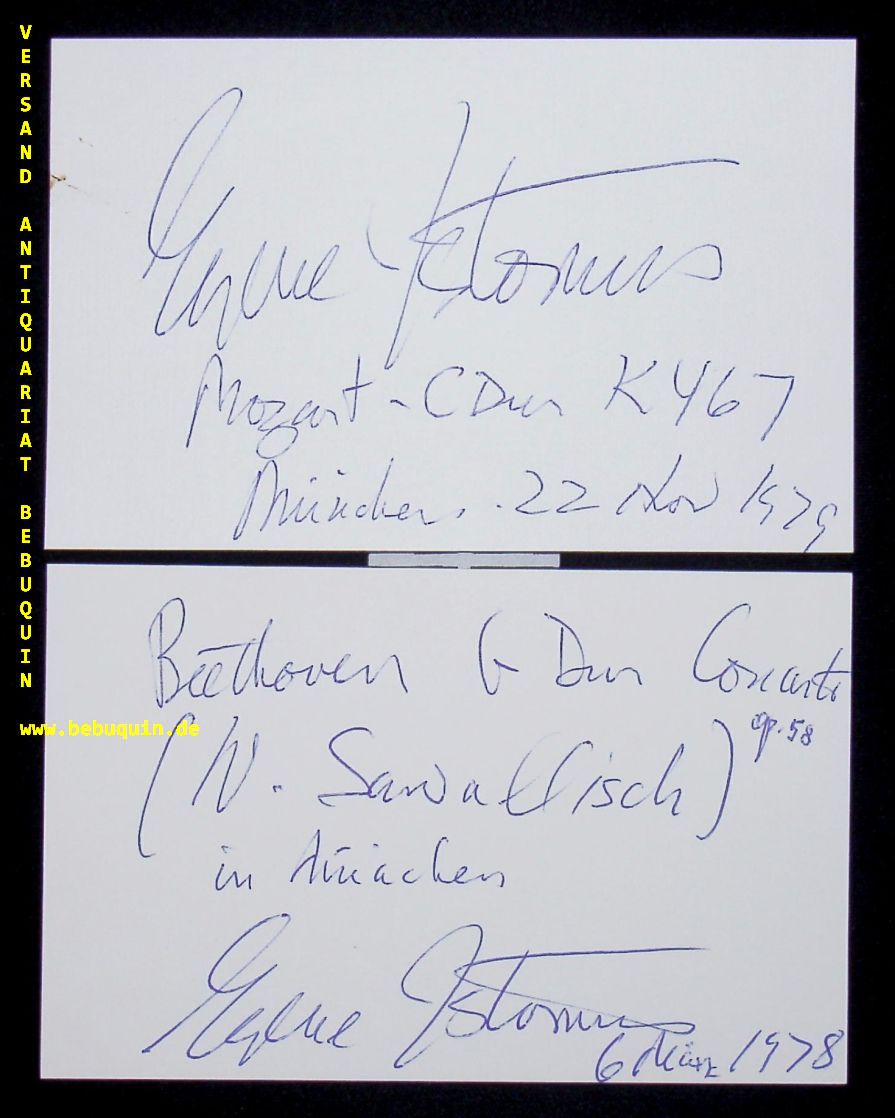 VERSAND ANTIQUARIAT BEBUQUIN
www.bebuquin.de
Eugene Istomin
Mozart - C Dur K 467
München. 22 Nov 1979
Beethoven G Dur Concerto
op. 58
(W. Sawallisch)
in München
Eugene Istomin
6 März 1978